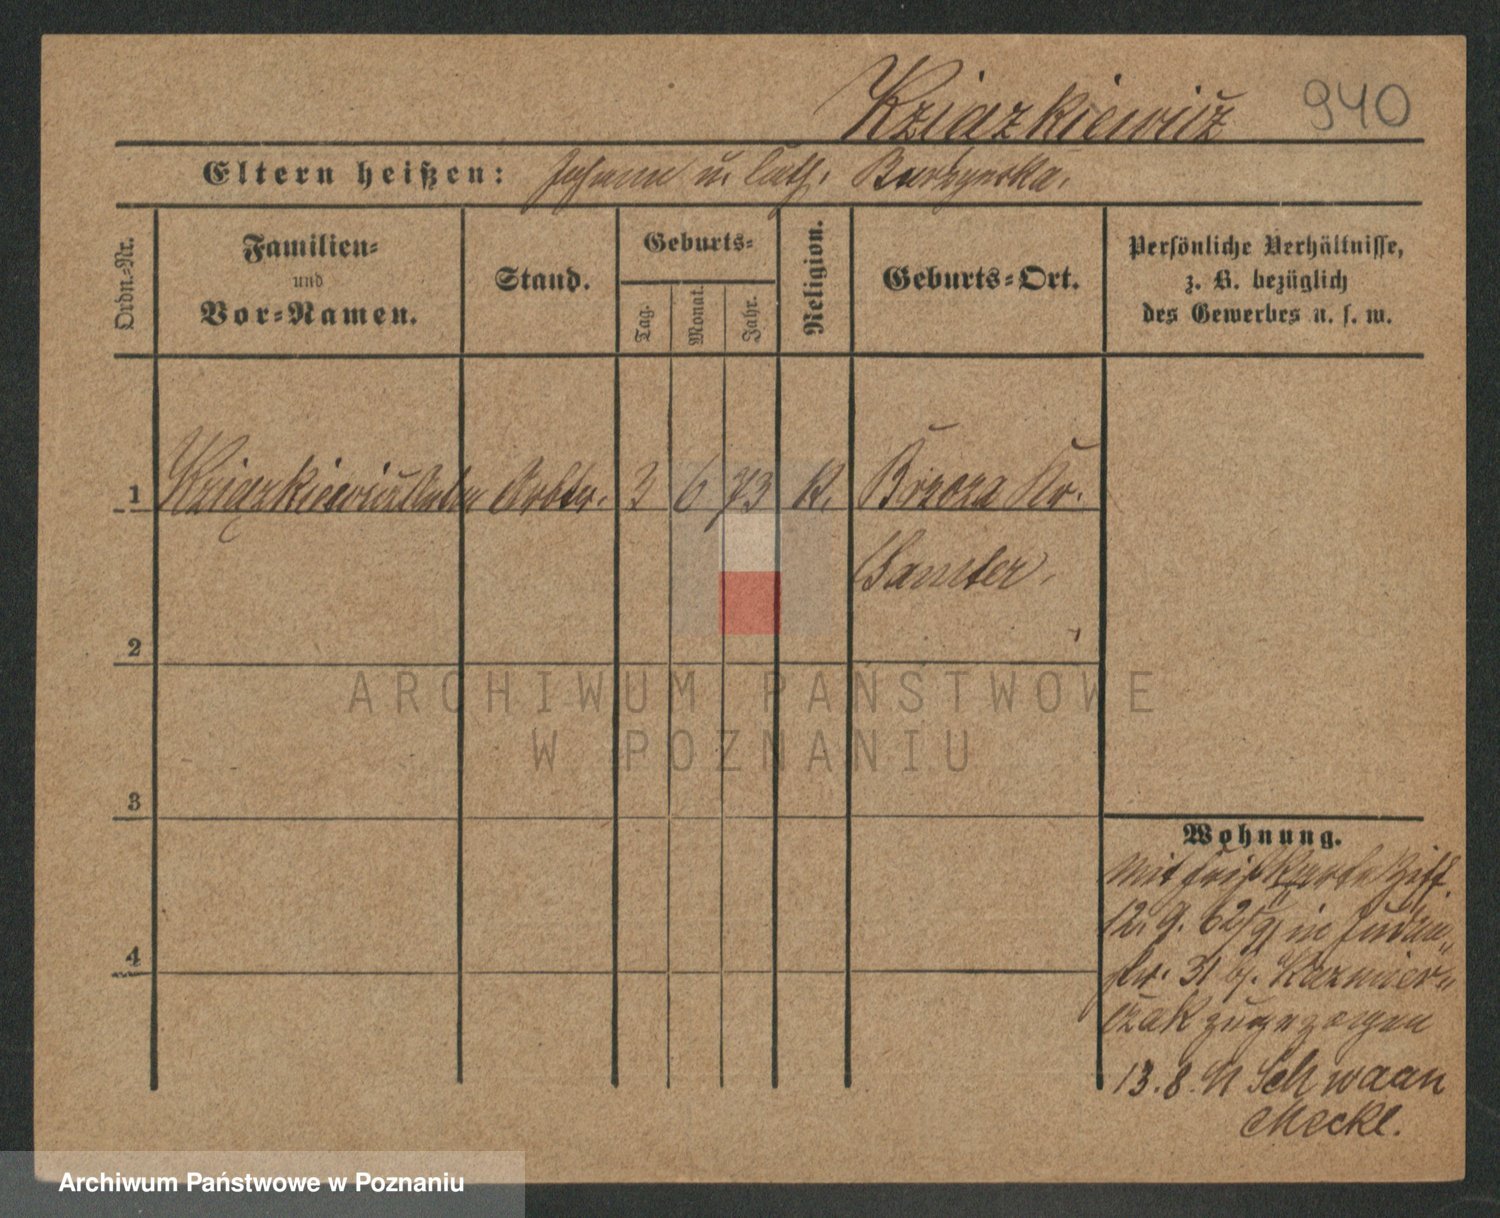 Kziazkiewicz 940
Eltern heißen: Johann u. Cath. Burzynska.
Ordn.-Nr.
Familien-
und
Vor-Namen.
Stand.
Geburts-
Tag.
Monat.
Jahr.
Religion.
Geburts-Ort.
Persönliche Verhältnisse,
z. B. bezüglich
des Gewerbes u. s. w.
1 Kziazkiewicz Anton Arbtr. 3 6 73 K. Brzoza Kr.
Samter.
2
ARCHIWUM PAŃSTWOWE
W POZNANIU
3
Wohnung.
mit
12. 9. in Juden-
str. 31 b. Kazmier-
4
czak zugezogen
13. 8. 91 Schwaan
Meckl.
Archiwum Państwowe w Poznaniu